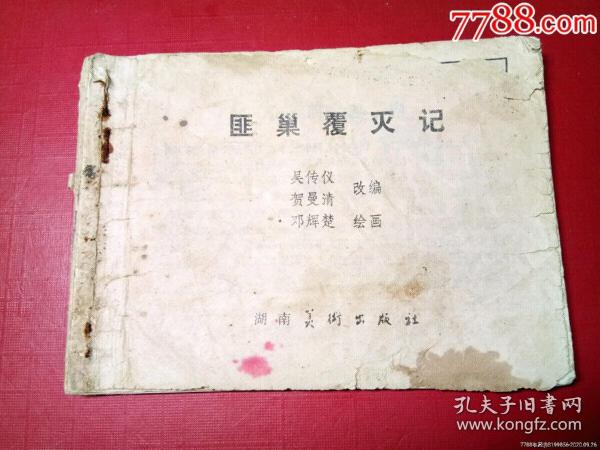 7788.com
中国收藏热线
匪巢覆灭记
吴传仪
贺曼清 改编
邓辉楚 绘画
湖南美术出版社
孔夫子旧书网
www.kongfz.com